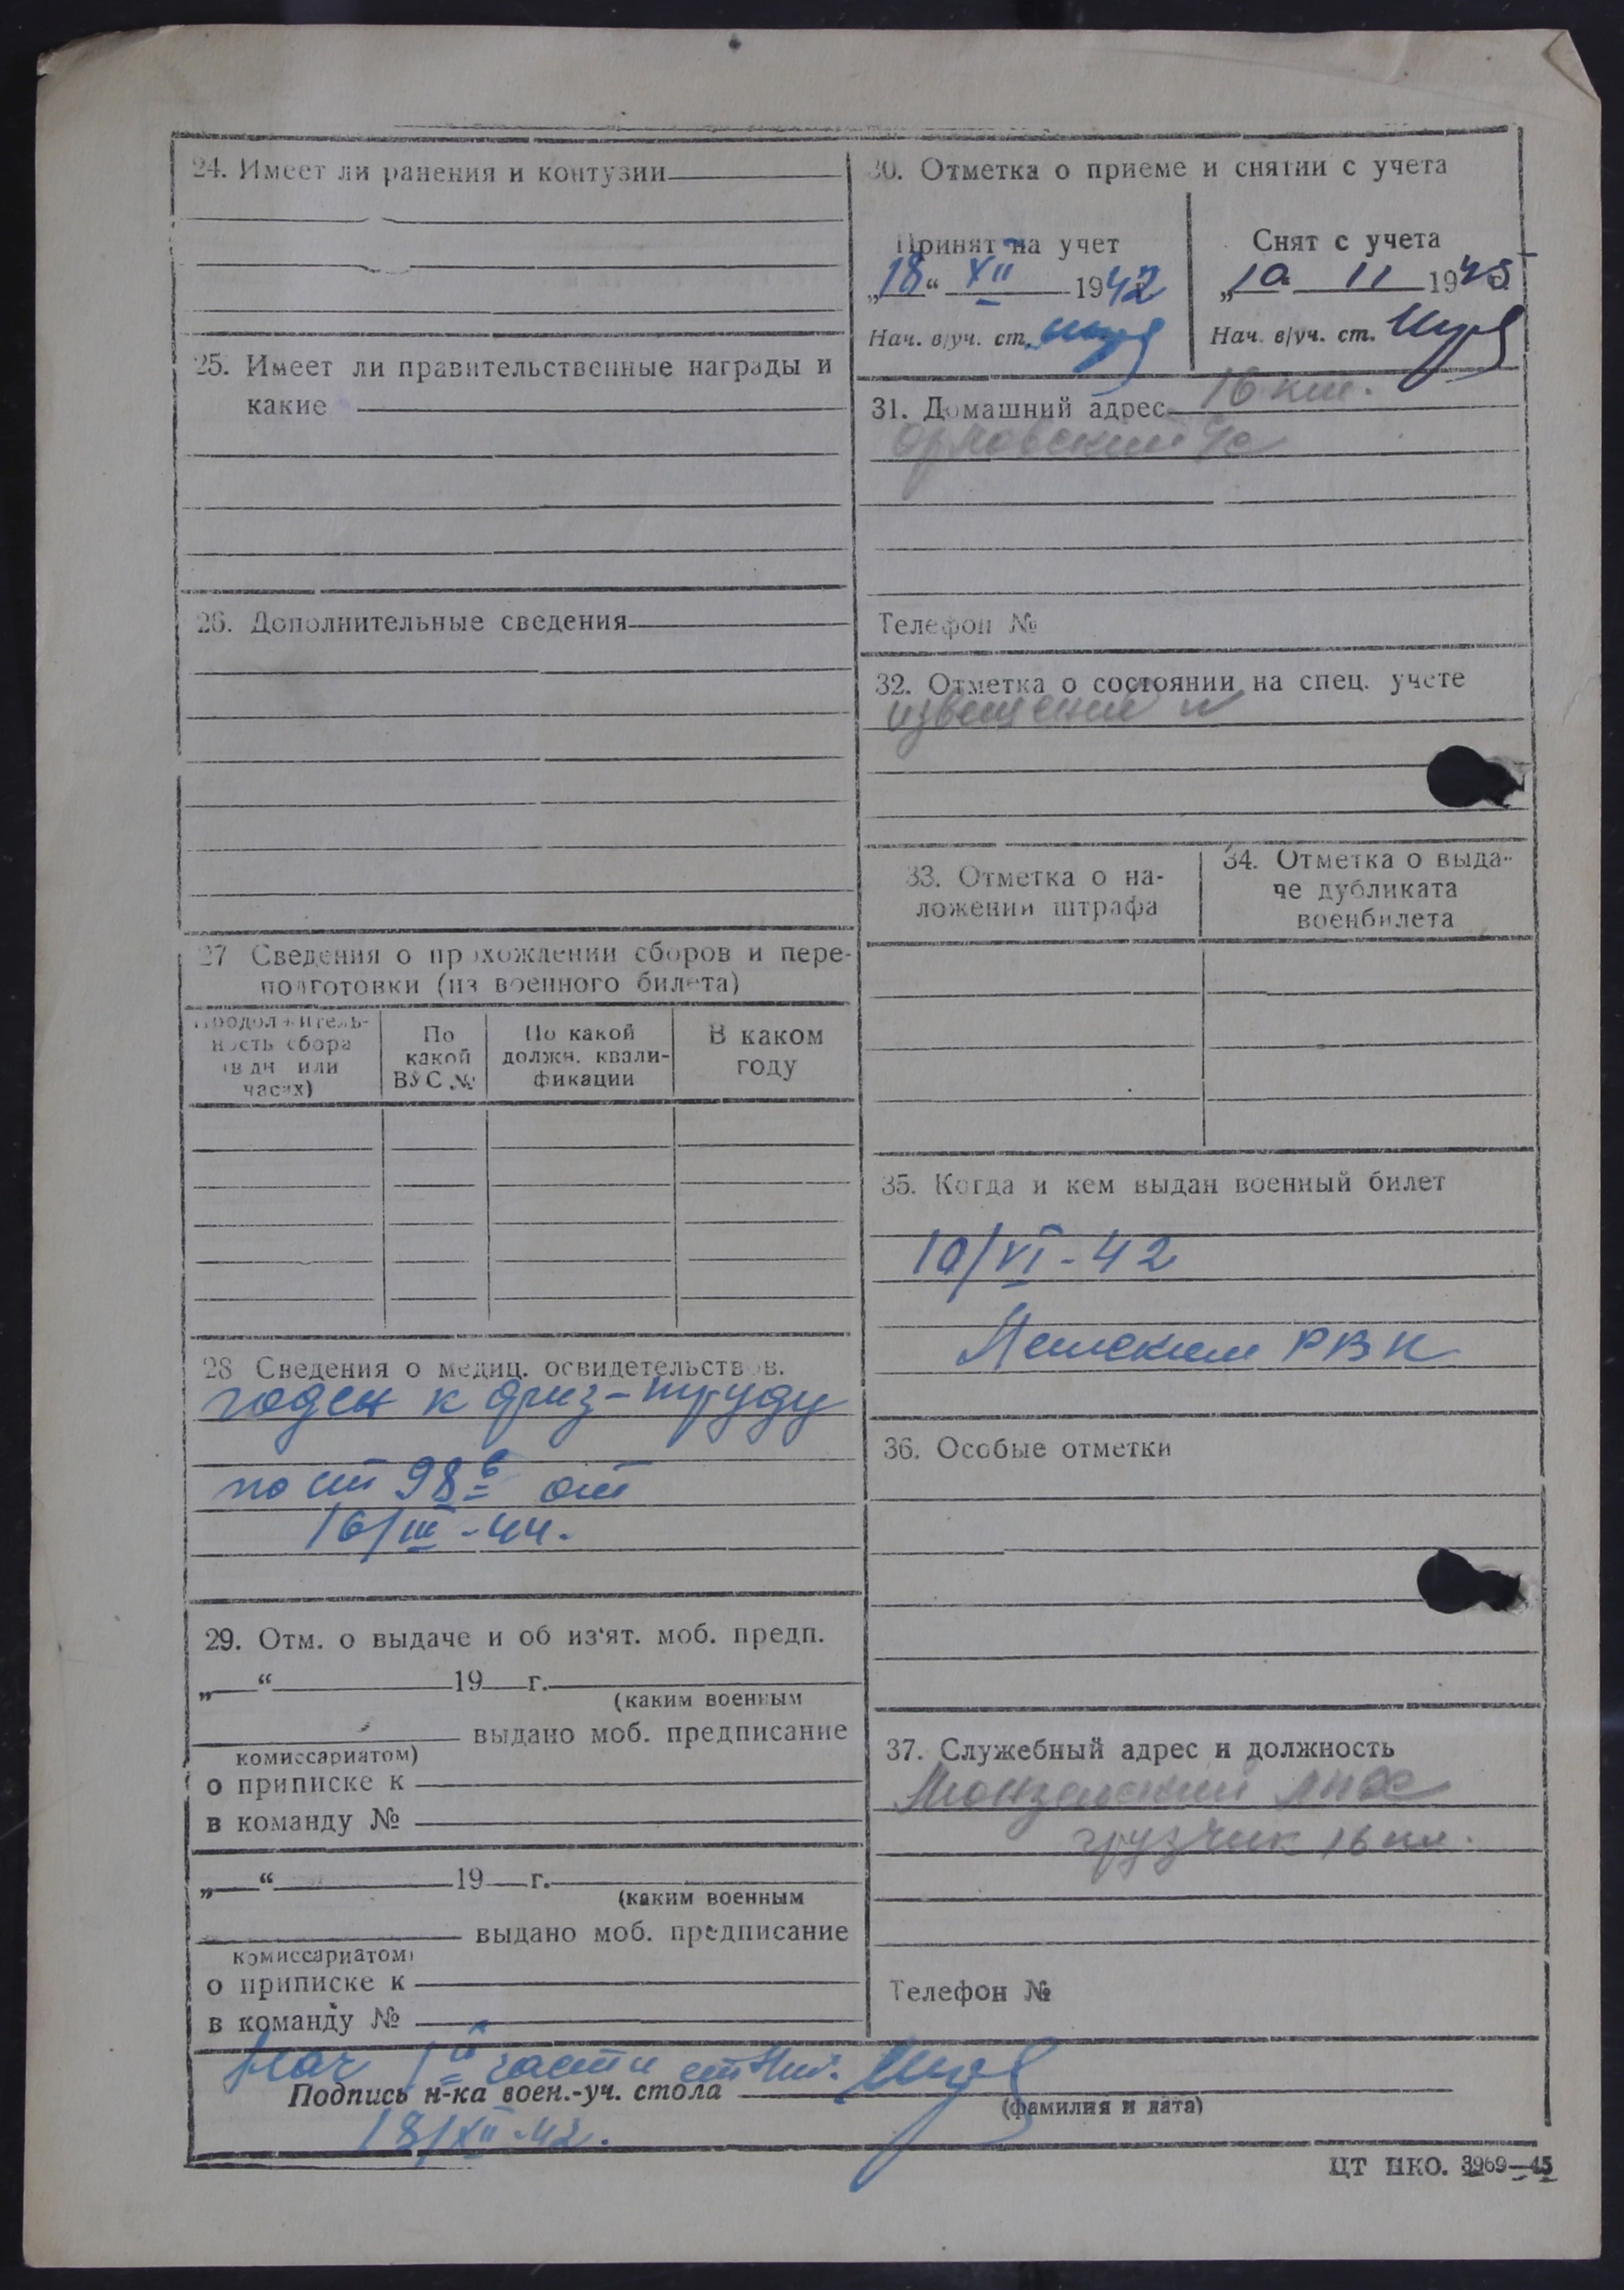 24. Имеет ли ранения и контузии
25. Имеет ли правительственные награды и
какие
26. Дополнительные сведения
27 Сведения о прохождении сборов и пере-
подготовки (из военного билета)
Продолжитель-
ность сбора
(в дн или
часах)
По
какой
ВУС №
По какой
должн. квали-
фикации
В каком
году
28 Сведения о медиц. освидетельствов.
годен к физ-труду
по ст 98 б от
16/III-44.
29. Отм. о выдаче и об из'ят. моб. предп.
„ “ 19 г.
(каким военным
выдано моб. предписание
комиссариатом)
о приписке к
в команду №
„ “ 19 г.
(каким военным
выдано моб. предписание
комиссариатом)
о приписке к
в команду №
30. Отметка о приеме и снятии с учета
Принят на учет
„18“ XII 1942
Нач. в/уч. ст.
Снят с учета
„10 11 1945
Нач. в/уч. ст.
31. Домашний адрес 16 км.
Телефон №
32. Отметка о состоянии на спец. учете
извещение
33. Отметка о на-
ложении штрафа
34. Отметка о выда-
че дубликата
военбилета
35. Когда и кем выдан военный билет
10/VI-42
РВК
36. Особые отметки
37. Служебный адрес и должность
Монзенский ЛПХ
грузчик 16 км.
Телефон №
Нач части
Подпись н-ка воен.-уч. стола
(фамилия и дата)
18/XII-42.
ЦТ НКО. 3969—45